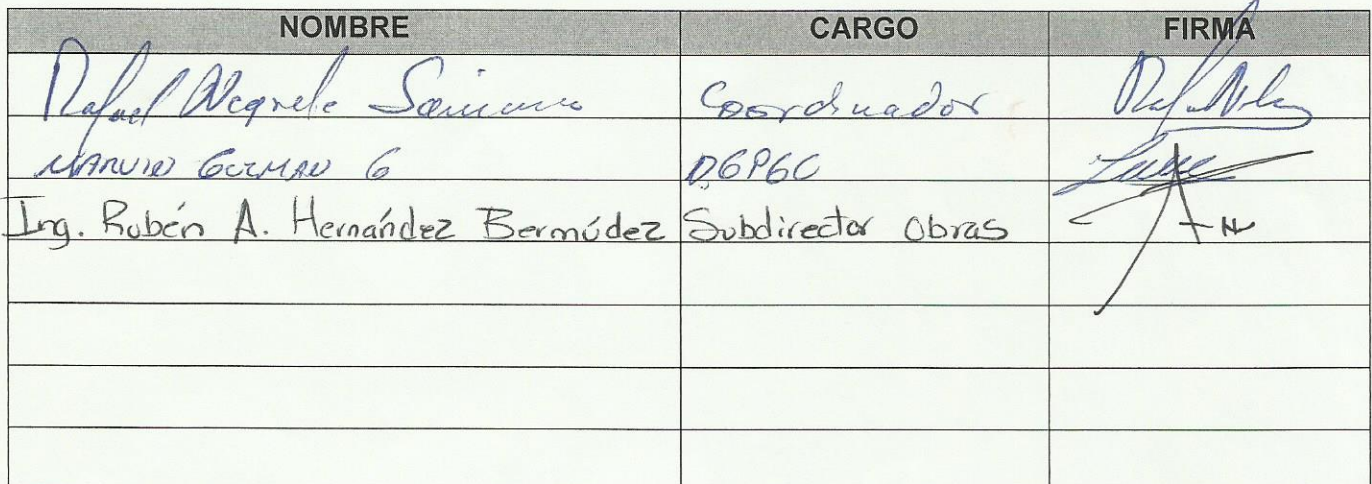 NOMBRE CARGO FIRMA
Rafael Coordinador
MARVIN GUZMAN G DGPGC
Ing. Rubén A. Hernández Bermúdez Subdirector Obras